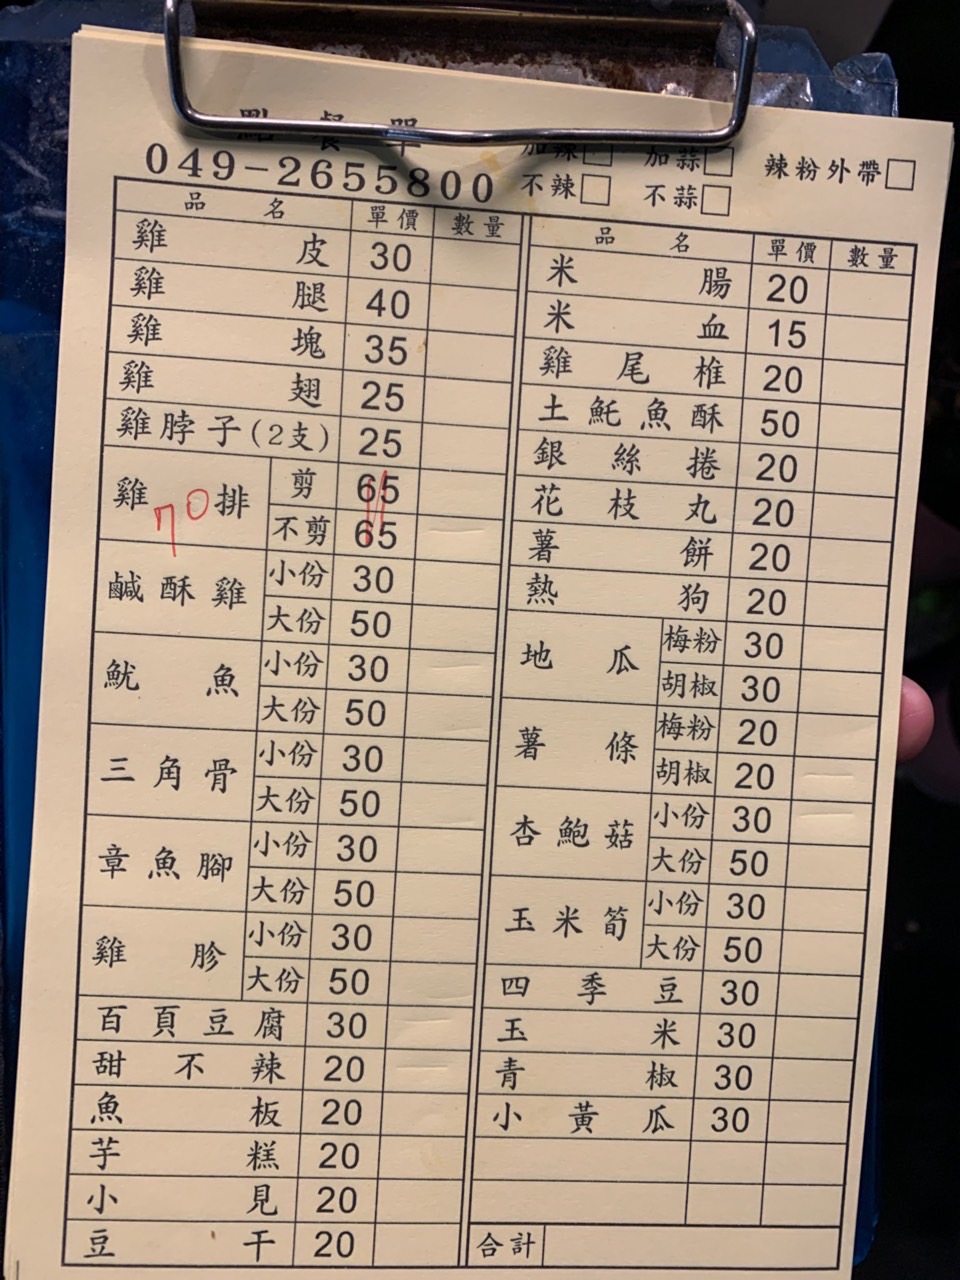 點餐單
049-2655800
加辣□ 加蒜□ 辣粉外帶□
不辣□ 不蒜□
品名 單價 數量
雞皮 30
雞腿 40
雞塊 35
雞翅 25
雞脖子(2支) 25
雞排 剪 65
70
不剪 65
鹹酥雞 小份 30
大份 50
魷魚 小份 30
大份 50
三角骨 小份 30
大份 50
章魚腳 小份 30
大份 50
雞胗 小份 30
大份 50
百頁豆腐 30
甜不辣 20
魚板 20
芋糕 20
小見 20
豆干 20
品名 單價 數量
米腸 20
米血 15
雞尾椎 20
土魠魚酥 50
銀絲捲 20
花枝丸 20
薯餅 20
熱狗 20
地瓜 梅粉 30
胡椒 30
薯條 梅粉 20
胡椒 20
杏鮑菇 小份 30
大份 50
玉米筍 小份 30
大份 50
四季豆 30
玉米 30
青椒 30
小黃瓜 30
合計